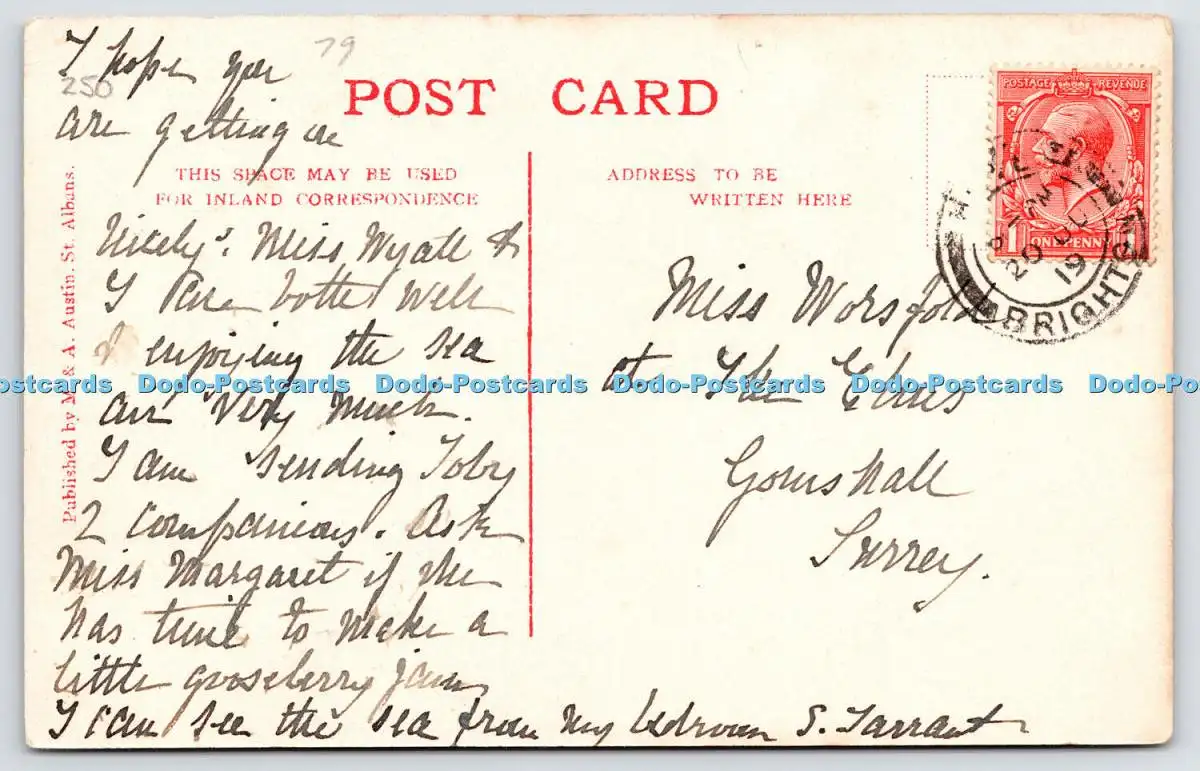 I hope you
79
250
are getting on
POST CARD
THIS SPACE MAY BE USED
FOR INLAND CORRESPONDENCE
ADDRESS TO BE
WRITTEN HERE
Published by M. & A. Austin, St. Albans.
POSTAGE REVENUE
1 ONE PENNY
12 PM
20
19
BRIGHTON
Nicely. Miss Wyatt &
I are both well
& enjoying the sea
air very much.
I am sending Toby
2 companions. Ask
Miss Margaret if she
has time to make a
little gooseberry jam
I can see the sea from my bedroom S. Tarrant
Miss Worsfold
at The Elms
Gomshall
Surrey.
Dodo-Postcards Dodo-Postcards Dodo-Postcards Dodo-Postcards Dodo-Postcards Dodo-Postcards